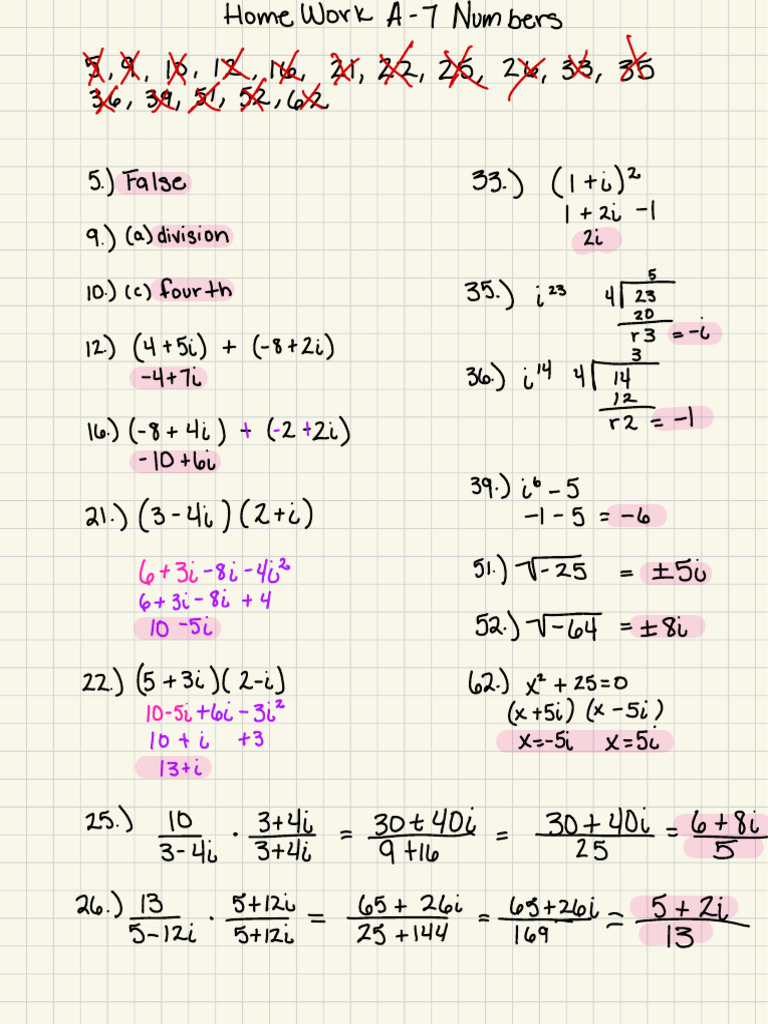 Home Work A-7 Numbers
5, 9, 10, 12, 16, 21, 22, 25, 26, 33, 35
36, 39, 51, 52, 62
5.) False
9.) (a) division
10.) (c) fourth
12.) (4+5i) + (-8+2i)
-4+7i
16.) (-8 + 4i) + (-2 +2i)
-10 +6i
21.) (3-4i)(2+i)
6+3i-8i-4i²
6+3i-8i +4
10 -5i
22.) (5+3i)(2-i)
10-5i+6i-3i²
10 + i +3
13+i
33.) (1+i)²
1 + 2i -1
2i
35.) i²³ 4√23 5
20
r3 = -i
36.) i¹⁴ 4√14 3
12
r2 = -1
39.) i⁶ - 5
-1 - 5 = -6
51.) √-25 = ±5i
52.) √-64 = ±8i
62.) x² + 25=0
(x+5i) (x-5i)
x=-5i x=5i
25.) 10/3-4i · 3+4i/3+4i = 30+40i/9+16 = 30+40i/25 = 6+8i/5
26.) 13/5-12i · 5+12i/5+12i = 65+26i/25+144 = 65+26i/169 = 5+2i/13